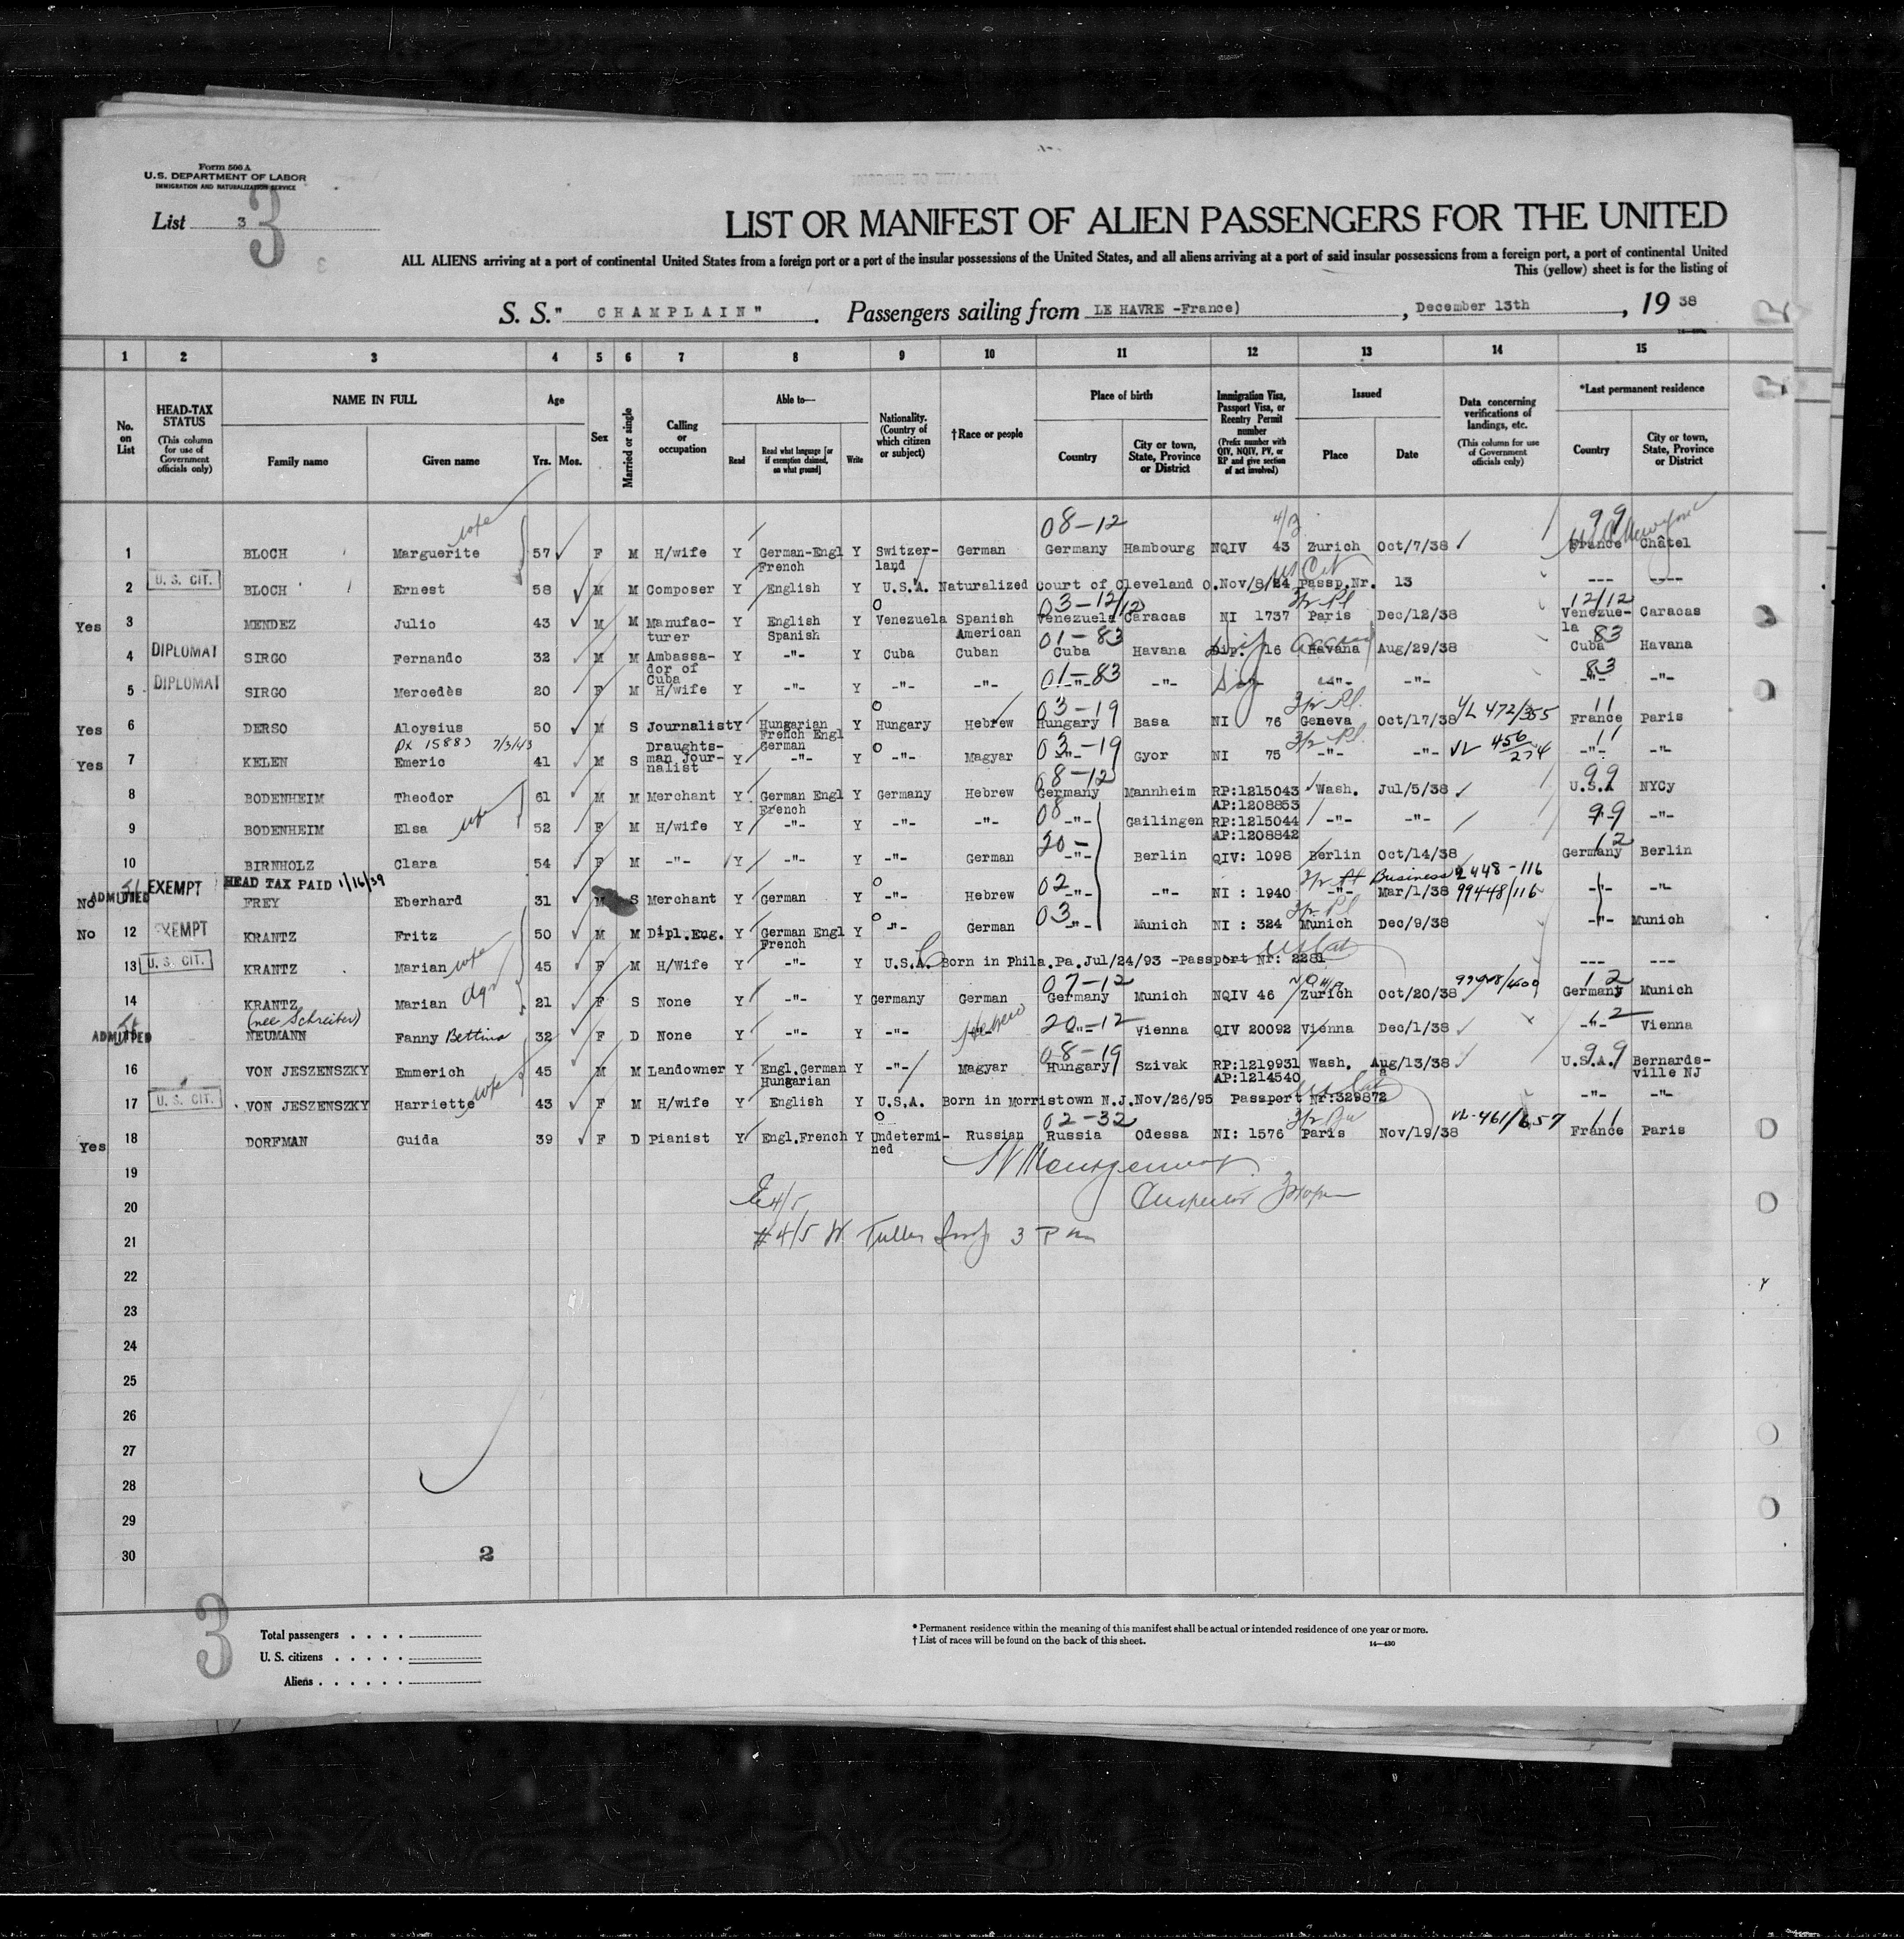 Form 500 A
U.S. DEPARTMENT OF LABOR
IMMIGRATION AND NATURALIZATION SERVICE
List 3
3
LIST OR MANIFEST OF ALIEN PASSENGERS FOR THE UNITED
ALL ALIENS arriving at a port of continental United States from a foreign port or a port of the insular possessions of the United States, and all aliens arriving at a port of said insular possessions from a foreign port, a port of continental United
This (yellow) sheet is for the listing of
S. S. "CHAMPLAIN". Passengers sailing from LE HAVRE -France), December 13th, 19 38
1 2 3 4 5 6 7 8 9 10 11 12 13 14 15
No. on List
HEAD-TAX STATUS (This column for use of Government officials only)
NAME IN FULL
Family name Given name
Age
Yrs. Mos.
Sex
Married or single
Calling or occupation
Able to—
Read Read what language [or if exemption claimed, on what ground] Write
Nationality. (Country of which citizen or subject)
†Race or people
Place of birth
Country City or town, State, Province or District
Immigration Visa, Passport Visa, or Reentry Permit number (Prefix number with QIV, NQIV, PV, or RP and give section of act involved)
Issued
Place Date
Data concerning verifications of landings, etc. (This column for use of Government officials only)
*Last permanent residence
Country City or town, State, Province or District
wife 08-12 99
1 BLOCH Marguerite 57 F M H/wife Y German-Engl French Y Switzer-land German Germany Hambourg NQIV 43 Zurich Oct/7/38 France Châtel
2 U. S. CIT. BLOCH Ernest 58 M M Composer Y English Y U.S.A. Naturalized Court of Cleveland O.Nov/8/24 Passp.Nr. 13 --- ----
03-12/12 12/12
Yes 3 MENDEZ Julio 43 M M Manufac-turer Y English Spanish Y Venezuela Spanish American Venezuela Caracas NI 1737 Paris Dec/12/38 Venezue-la Caracas
01-83 83
4 DIPLOMAT SIRGO Fernando 32 M M Ambassa-dor of Cuba Y -"- Y Cuba Cuban Cuba Havana Dip. 16 Havana Aug/29/38 Cuba Havana
01-83 83
5 DIPLOMAT SIRGO Mercedès 20 F M H/wife Y -"- Y -"- -"- -"- -"- -"- -"- -"- -"-
03-19 11
Yes 6 DERSO Aloysius 50 M S Journalist Y Hungarian French Engl German Y Hungary Hebrew Hungary Basa NI 76 Geneva Oct/17/38 VL 472/355 France Paris
PX 15883 7/3/43 03-19 11
Yes 7 KELEN Emeric 41 M S Draughts-man Jour-nalist Y -"- Y -"- Magyar -"- Gyor NI 75 -"- -"- VL 456/234 -"- -"-
08-12 99
8 BODENHEIM Theodor 61 M M Merchant Y German Engl French Y Germany Hebrew Germany Mannheim RP:1215043 AP:1208853 Wash. Jul/5/38 U.S.A NYCy
wife 08 99
9 BODENHEIM Elsa 52 F M H/wife Y -"- Y -"- -"- -"- Gailingen RP:1215044 AP:1208842 -"- -"- -"-
20- 12
10 BIRNHOLZ Clara 54 F M -"- Y -"- Y -"- German -"- Berlin QIV: 1098 Berlin Oct/14/38 Germany Berlin
HEAD TAX PAID 1/16/39 02 Business 2448-116
No ADMITTED EXEMPT FREY Eberhard 31 M S Merchant Y German Y -"- Hebrew -"- -"- NI : 1940 -"- Mar/1/38 99448/116 -"- -"-
03
No 12 EXEMPT KRANTZ Fritz 50 M M Dipl.Eng. Y German Engl French Y -"- German -"- Munich NI : 324 Munich Dec/9/38 -"- Munich
13 U. S. CIT. KRANTZ Marian wife 45 F M H/Wife Y -"- Y U.S.A. Born in Phila.Pa.Jul/24/93 -Passport Nr: 2281 --- ---
07-12 12
14 KRANTZ Marian 21 F S None Y -"- Y Germany German Germany Munich NQIV 46 Zurich Oct/20/38 Germany Munich
(nee Schreiber) Hebrew 20-12 12
ADMITTED NEUMANN Fanny Bettina 32 F D None Y -"- Y -"- -"- -"- Vienna QIV 20092 Vienna Dec/1/38 -"- Vienna
08-19 99
16 VON JESZENSZKY Emmerich 45 M M Landowner Y Engl.German Hungarian Y -"- Magyar Hungary Szivak RP:1219931 AP:1214540 Wash. Aug/13/38 U.S.A. Bernards-ville NJ
17 U. S. CIT. VON JESZENSZKY Harriette wife 43 F M H/wife Y English Y U.S.A. Born in Morristown N.J.Nov/26/95 Passport Nr:329872 -"- -"-
02-32 11
Yes 18 DORFMAN Guida 39 F D Pianist Y Engl.French Y Undetermi-ned Russian Russia Odessa NI: 1576 Paris Nov/19/38 VL-461/657 France Paris
19
20
21 #4/5 W 3 Pm
22
23
24
25
26
27
28
29
30
2
3
Total passengers . . . .
U. S. citizens . . . . .
Aliens . . . . . .
* Permanent residence within the meaning of this manifest shall be actual or intended residence of one year or more.
† List of races will be found on the back of this sheet.
14—430